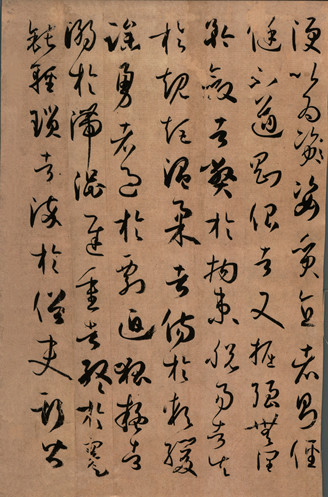 便以為姿質直者則俓
侹不遒剛佷者又掘強無潤
矜斂者弊於拘束脫易者失
於規矩溫柔者傷於軟緩
躁勇者過於剽迫狐疑者
溺於滯澀遲重者終於蹇
鈍輕瑣者染於俗吏斯皆